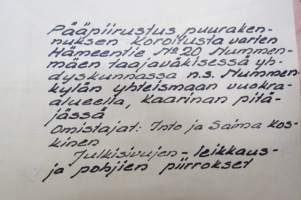 Pääpiirustus puuraken-
nuksen koroitusta varten
Hämeentie No 20 Nummen-
mäen taajaväkisessä yh-
dyskunnassa n.s. Nummen
kylän yhteismaan vuokra-
alueella, Kaarinan pitä-
jässä
Omistajat: Into ja Saima Kos-
kinen
Julkisivujen - leikkaus-
ja pohjien piirrokset